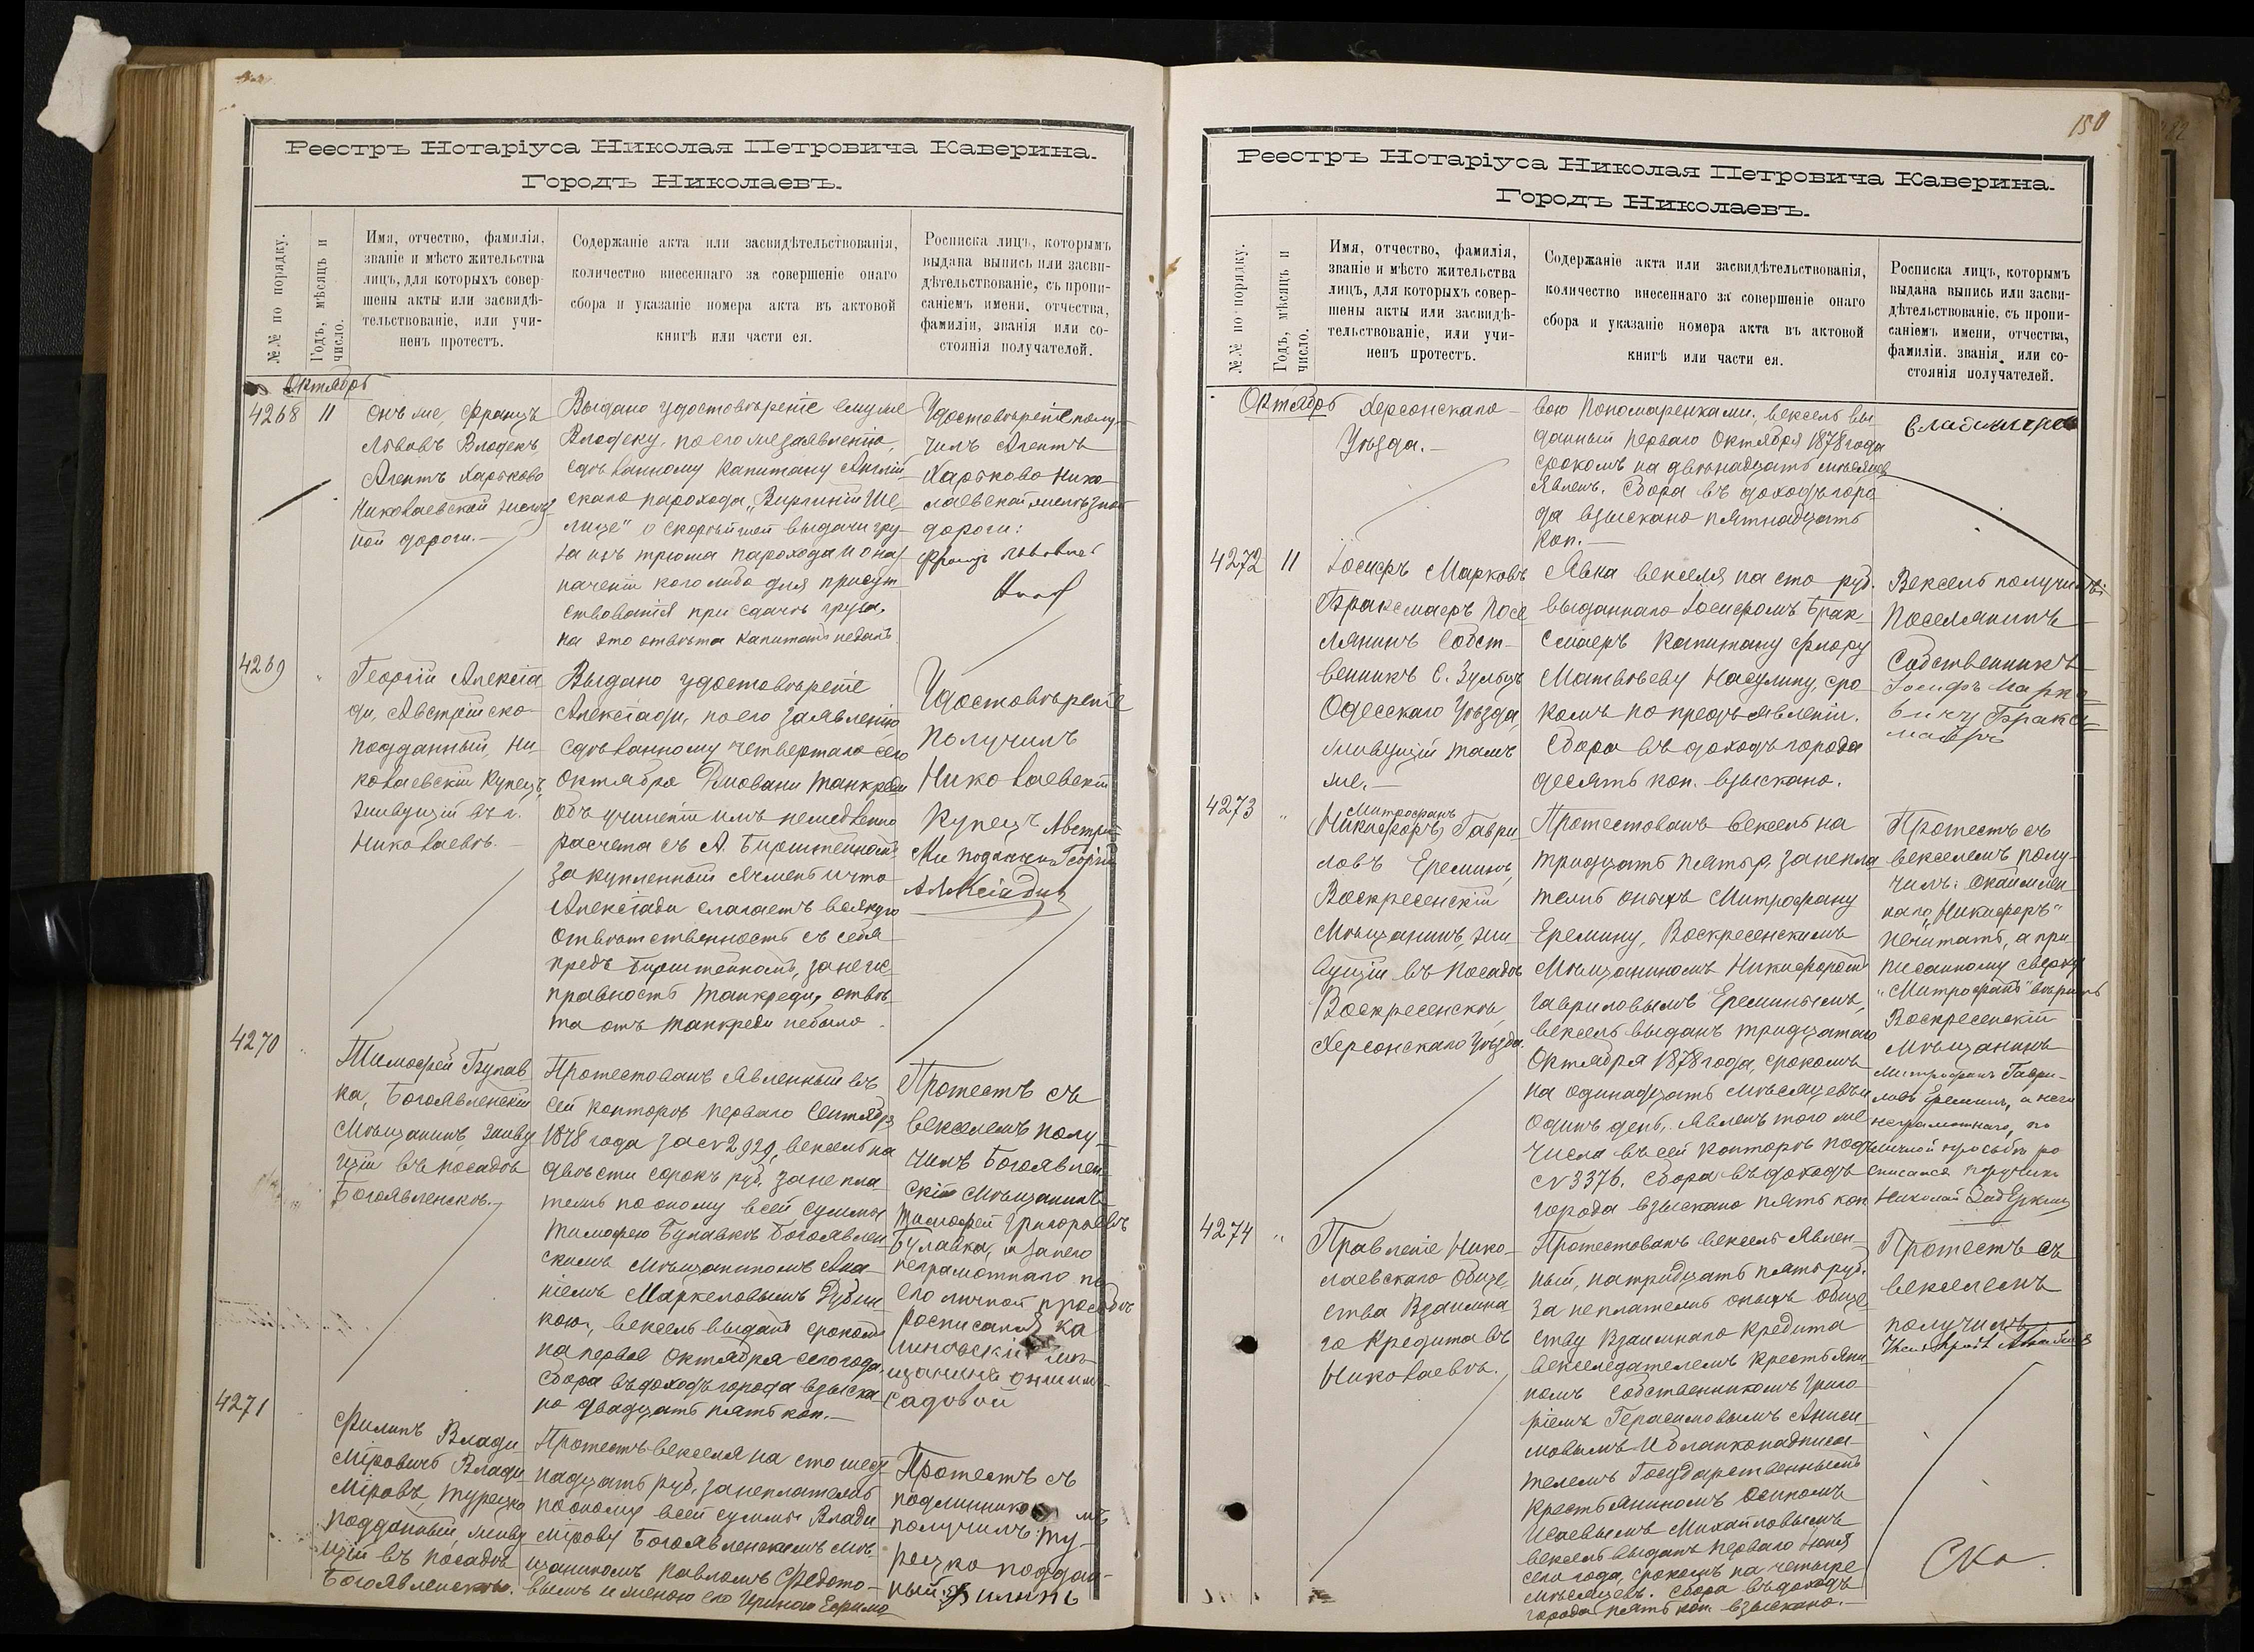 Реестръ Нотаріуса Николая Петровича Каверина.
Городъ Николаевъ.
№№ по порядку.
Годъ, мѣсяцъ и
число.
Имя, отчество, фамилія,
званіе и мѣсто жительства
лицъ, для которыхъ совер-
шены акты или засвидѣ-
тельствованіе, или учи-
ненъ протестъ.
Содержаніе акта или засвидѣтельствованія,
количество внесеннаго за совершеніе онаго
сбора и указаніе номера акта въ актовой
книгѣ или части ея.
Росписка лицъ, которымъ
выдана выпись или засви-
дѣтельствованіе, съ пропи-
саніемъ имени, отчества,
фамиліи, званія или со-
стоянія получателей.
Октябрь
4268
11
Онъ же, Францъ
Львовъ Влодекъ,
Агентъ Харьково
Николаевской желѣз
ной дороги.
Выдано удостовѣреніе ему же
Влодеку, по его же заявленію,
сдѣланному Капитану Англій
скаго парохода „Виргиній Ше-
лице" о скорѣйшей выдачи гру-
за изъ трюма парохода и о наз
наченіи кого либо для присут
ствованія при сдачѣ груза,
на это отвѣта Капитанъ недалъ.
Удостовѣреніе полу-
чилъ Агентъ
Харьково Нико
лаевской желѣзной
дороги:
Францъ Львовичъ
4269
"
Георгій Алексіа
ди, Австрійско-
подданный, Ни-
колаевскій Купецъ,
живущій въ г.
Николаевѣ.
Выдано удостовѣреніе
Алексіади, по его заявленію
сдѣланному четвертаго сего
Октября Джовани Танкреди
объ учиненіи имъ немедленно
расчета съ А. Бирштейномъ
за купленный ячмень и что
Алексіади слагаетъ всякую
отвѣтственность съ себя
предъ Бирштейномъ, за неис-
правность Танкреди, отвѣ-
та отъ Танкреди небыло.
Удостовѣреніе
получилъ
Николаевскій
Купецъ Австрій
ски подданный Георгій
Алексіади
4270
"
Тимофей Булав-
ка, Богоявленскій
Мѣщанинъ, живу
щій въ посадѣ
Богоявленскѣ.
Протестованъ явленный въ
сей конторѣ перваго Сентября
1878 года за № 2929, вексель на
двѣсти сорокъ руб. за непла-
тежъ по оному всей суммы
Тимофею Булавкѣ Богоявлен-
скимъ мѣщаниномъ Ана-
ніемъ Маркеловымъ Дубин
кою, вексель выданъ срокомъ
на первое Октября сего года.
Сбора въ доходъ города взыска-
но двадцать пять коп.
Протестъ съ
векселемъ полу-
чилъ Богоявлен
скій Мѣщанинъ
Тимофей Григорьевъ
Булавка, и за него
неграмотнаго по
его личной просьбѣ
росписался Ка
линовскій мѣ-
щанинъ Онисимъ
Садовой
4271
Филипъ Влади
міровичъ Влади
міровъ, турецко
подданный, живу
щій въ посадѣ
Богоявленскѣ.
Протестъ векселя на сто шест
надцать руб. за неплатежъ
по оному всей суммы Влади
мірову Богоявленскимъ мѣ-
щаниномъ Павломъ Федото-
вымъ и женою его Ириною Ефимо
Протестъ съ
подлинникомъ
получилъ: ту-
рецко поддан-
ный: Филипъ
150
Реестръ Нотаріуса Николая Петровича Каверина.
Городъ Николаевъ.
№№ по порядку.
Годъ, мѣсяцъ и
число.
Имя, отчество, фамилія,
званіе и мѣсто жительства
лицъ, для которыхъ совер-
шены акты или засвидѣ-
тельствованіе, или учи-
ненъ протестъ.
Содержаніе акта или засвидѣтельствованія,
количество внесеннаго за совершеніе онаго
сбора и указаніе номера акта въ актовой
книгѣ или части ея.
Росписка лицъ, которымъ
выдана выпись или засви-
дѣтельствованіе, съ пропи-
саніемъ имени, отчества,
фамиліи, званія или со-
стоянія получателей.
Октябрь
Херсонскаго
Уѣзда.
вою Пономаренками, вексель вы
данный перваго Октября 1878 года
срокомъ на двѣнадцать мѣсяцев
явленъ. Сбора въ доходъ горо
да взыскано пятнадцать
коп.
Владимиров
4272
11
Іосифъ Марковъ
Браксмаеръ Посе
лянинъ Собст-
венникъ С. Зульцъ
Одесскаго Уѣзда
живущій тамъ
же.
Явка векселя на сто руб.
выданнаго Іосифомъ Брак
смаеръ Капитану Флору
Матвѣеву Насулину, сро
комъ по предъявленіи.
Сбора въ доходъ города
десять коп. взыскано.
Вексель получилъ:
Поселянинъ
Собственникъ
Іосифъ Марко
вичу Бракс
маеръ
4273
"
Митрофанъ
(Никифоръ) Гаври
ловъ Ереминъ,
Воскресенскій
Мѣщанинъ, жи
вущій въ посадѣ
Воскресенскѣ,
Херсонскаго Уѣзда.
Протестованъ вексель на
тридцать пять р. за непла
тежъ оныхъ Митрофану
Еремину, Воскресенскимъ
Мѣщаниномъ Никифоромъ
Гавриловымъ Ереминымъ,
вексель выданъ тридцатаго
Октября 1878 года, срокомъ
на одинадцать мѣсяцевъ и
одинъ день, явленъ того же
числа въ сей конторѣ подъ
№ 3376. Сбора въ доходъ
города взыскано пять коп
Протестъ съ
векселемъ полу-
чилъ: скаймлен
наго „Никифоръ"
нечитать, а при
писанному сверху
„Митрофанъ" вѣрить
Воскресенскій
Мѣщанинъ
Митрофанъ Гаври-
ловъ Ереминъ, а него
неграмотнаго, по
личной просьбѣ ро
списался поручикъ
Николай
4274
"
Правленіе Нико-
лаевскаго Обще
ства Взаимна
го Кредита въ
Николаевѣ.
Протестованъ вексель явлен-
ный, на тридцать пять руб.
за неплатежъ оныхъ Обще
ству Взаимнаго Кредита
векселедателемъ крестьяни
номъ собственникомъ Григо
ріемъ Герасимовымъ Аниси
мовымъ и бланконадписа-
телемъ Государственнымъ
крестьяниномъ Осипомъ
Исаевымъ Михайловымъ
вексель выданъ перваго Іюня
сего года, срокомъ на четыре
мѣсяцевъ. Сбора въ доходъ
города пять коп. взыскано.
Протестъ съ
векселемъ
получилъ